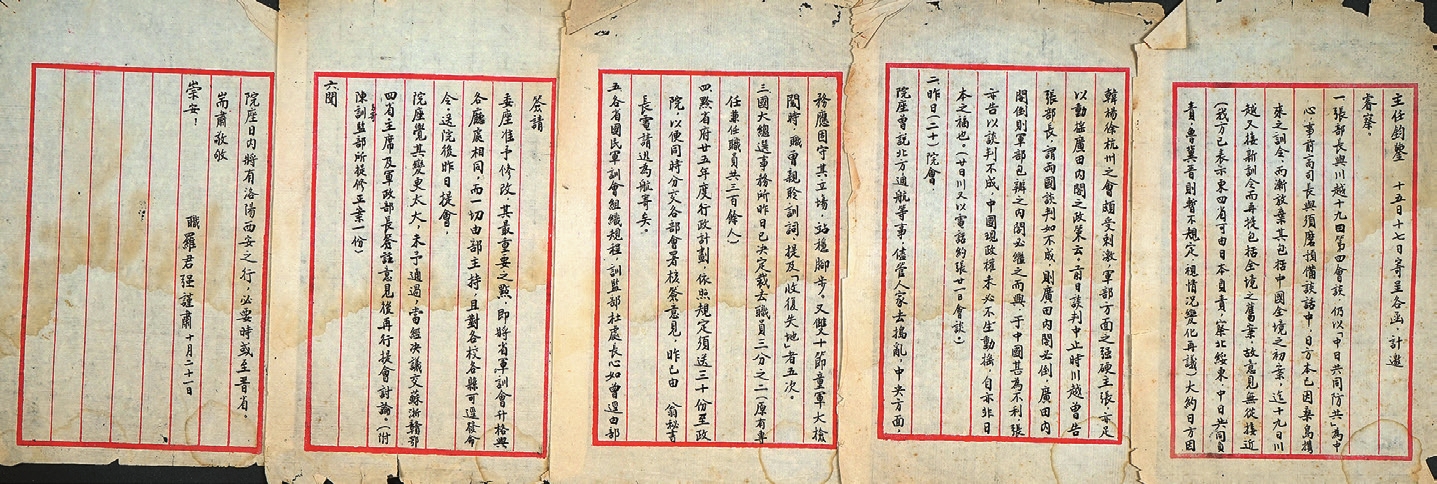 主任鈞鑒　十五日十七日寄呈各函計邀
睿察。
一張部長與川越十九日第四會談，仍以「中日共同防共」為中
心，事前高司長與須磨預備談話中，日方本已因桑島携
來之訓令，而漸放棄其包括中國全境之初案，迄十九日川
越又接新訓令而再提包括全境之舊案，故意見無從接近
（我方已表示東四省可由日本負責，冀北綏東，中日共同負
責，魯冀晉則暫不規定，視情況變化再議）大約日方因
韓楊徐杭州之會頗受刺激，軍部方面之强硬主張，亦足
以動搖廣田內閣之政策云，前日談判中止時川越曾告
張部長，謂兩國談判如不成，則廣田內閣必倒，廣田內
閣倒則軍部包辦之內閣必繼之而興，于中國甚為不利，張
亦告以談判不成，中國現政權未必不生動搖，自亦非日
本之福也。（廿日川又以電話約張廿一日會談）
二昨日（二十）院會
院座曾說北方通航等事，儘管人家去搗亂，中央方面，
務應固守其立場，站穩腳步。又雙十節童軍大檢
閱時，職曾親聆訓詞，提及「收復失地」者五次。
三國大總選事務所昨日已決定裁去職員三分之二（原有專
任兼任職員共三百餘人）
四黔省府廿五年度行政計劃，依照規定須送三十份至政
院，以便同時分交各部會署核簽意見，昨已由　翁秘書
長電請迅為航寄矣。
五各省國民軍訓會組織規程，訓監部杜處長心如曾還由部
簽請
委座准予修改，其最重要之點，即將省軍訓會升格與
各廳處相同，而一切由部主持，且對各校各縣可逕發命
令，送院後昨日提會，
院座覺其變更太大，未予通過，當經決議交蘇浙贛鄂
四省主席及軍政部長簽註意見後再行提會討論。（附
陳訓監部所提修正案一份）
六聞
院座日內將有洛陽西安之行，必要時或至晉省。
耑肅敬頌
崇安！
職羅君强謹肅　十月二十一日